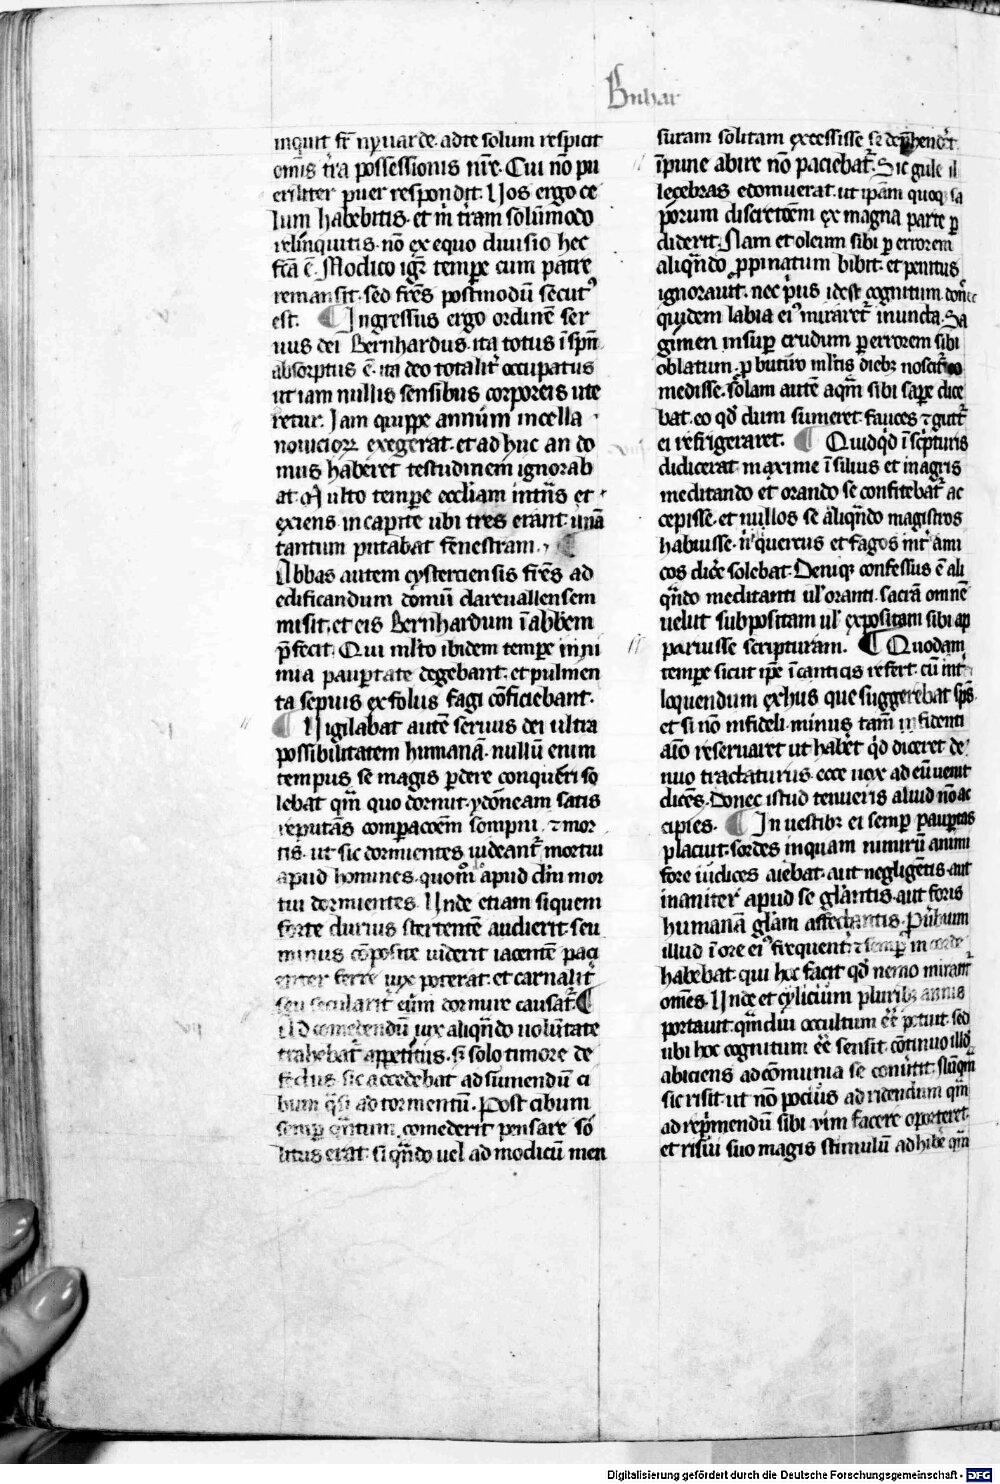 Bnhar
inquit fr̄ nyuarde. ad te solum respicit
om̄is t̄ra possessionis nr̄e. Cui nō pu
eriliter puer respondit. Uos ergo ce
lum habebitis. et m̄ t̄ram solūmodo
relinquitis. nō ex equo diuisio hec
fc̄a ē. Modico igr̄ tempe cum patre
remansit. sed fr̄es postmodū secut᷒
est. ¶ Ingressus ergo ordinē ser
uus dei Bernhardus. ita totus ī spm̄
absorptus ē. ita deo totalit̄ occupatus
ut iam nullis sensibus corporeis ute
retur. Iam quippe annum in cella
nouicioꝝ exegerat. et ad huc an do
mus haberet testudinem ignorab
at. Multo tempe eccliam intrās et
exiens in capite ubi tres erant unā
tantum putabat fenestram. ¶
Abbas autem cysterciensis fr̄es ad
edificandum domū clareuallensem
misit. et eis Bernhardum ī abb̄em
p̄fecit. Qui ml̄to ibidem tempe in ni
mia paup̱tate degebant. et pulmen
ta sepius ex folus fagi cōficiebant.
¶ Uigilabat autē seruus dei ultra
possibilitatem humanā. nullū enim
tempus se magis p̱dere conqueri so
lebat qm̄ quo dormit. ydoneam satis
reputās comparacōem sompni ⁊ mor
tis. ut sic dormientes uideant̄ mortui
apud homines. quom̄o apud dm̄ mor
tui dormientes. Unde etiam si quem
forte durius stertentē audierit. seu
minus cōposite uiderit iacentem paci
enter ferre uix poterat. et carnalit̄
seu secularit̄ eum dormire causat̄. ¶
Ad comedendū uix aliqn̄do uolūtate
trahebat̄ appetitus. sꝫ solo timore de
fectus. sic accedebat ad sumendū ci
bum q̄si ad tormentū. Post cibum
semp̱ qn̄tum comederit pensare so
litus erat. si qn̄do uel ad modicū men
suram solitam excessisse se dep̄hendit
īpune abire nō paciebat̄. Sic gule il
lecebras edomuerat. ut ipam̄ quoqꝫ sa
porum discretōem ex magna parte p̱
diderit. Nam et oleum sibi p̱ errorem
aliqn̄do ꝓpinatum bibit. et penitus
ignorauit. nec p̄us idest cognitum. donec
quidem labia ei᷒ miraret̄ inuncta. Sa
gimen insup̱ crudum p̱ errorem sibi
oblatum. p̱ butiro ml̄tis diebꝫ noscit̄ co
medisse. solam autē aqm̄ sibi sape dice
bat. eo qd̄ dum sumeret fauces ⁊ gutt̄
ei refrigeraret. ¶ Quidqd̄ ī sc̄pturis
didicerat. maxime ī siluis et in agris
meditando et orando se confitebat̄ ac
cepisse. et nullos se aliqn̄do magistros
habuisse. n̄ quercus et fagos int̄ ami
cos dice solebat. Deniqꝫ confessus ē ali
qn̄do meditanti ul̄ oranti. sacrā omnē
uelut subpositam ul̄ expositam sibi ap
paruisse scripturam. ¶ Quodam
tempe sicut ip̄e ī canticis refert. cū int̄
loquendum ex hus que suggerebat sp̄s
et si nō infideli. minus tam̄ infidenti
aīo reseruaret ut hab̄et qd̄ diceret de
nuo tractaturus. ecce uox ad eū uenit
dicēs. Donec istud tenueris aliud nō ac
cipies. ¶ In uestibꝫ ei semp̱ paup̱tas
placuit. sordes inquam nimirū animi
fore iudices aiebat. aut negligētis. aut
inaniter apud se glan̄tis. aut foris
humanā glam̄ affectantis. P̄ūbium
illud ī ore ei᷒ frequent̄ ⁊ semp̱ in corde
habebat. qui hoc facit qd̄ nemo mirant̄
om̄es. Unde et cylicium pluribꝫ annis
portauit. qm̄ diu occultum ee᷒ potuit. sed
ubi hoc cognitum ee᷒ sensit. cōtinuo illd̄
abiciens ad cōmunia se conūtit. Nūqm̄
sic risit. ut nō pocius ad ridendum qm̄
ad rep̄mendū sibi uim facere oporteret.
et risui suo magis stimulū adhib̄e qm̄